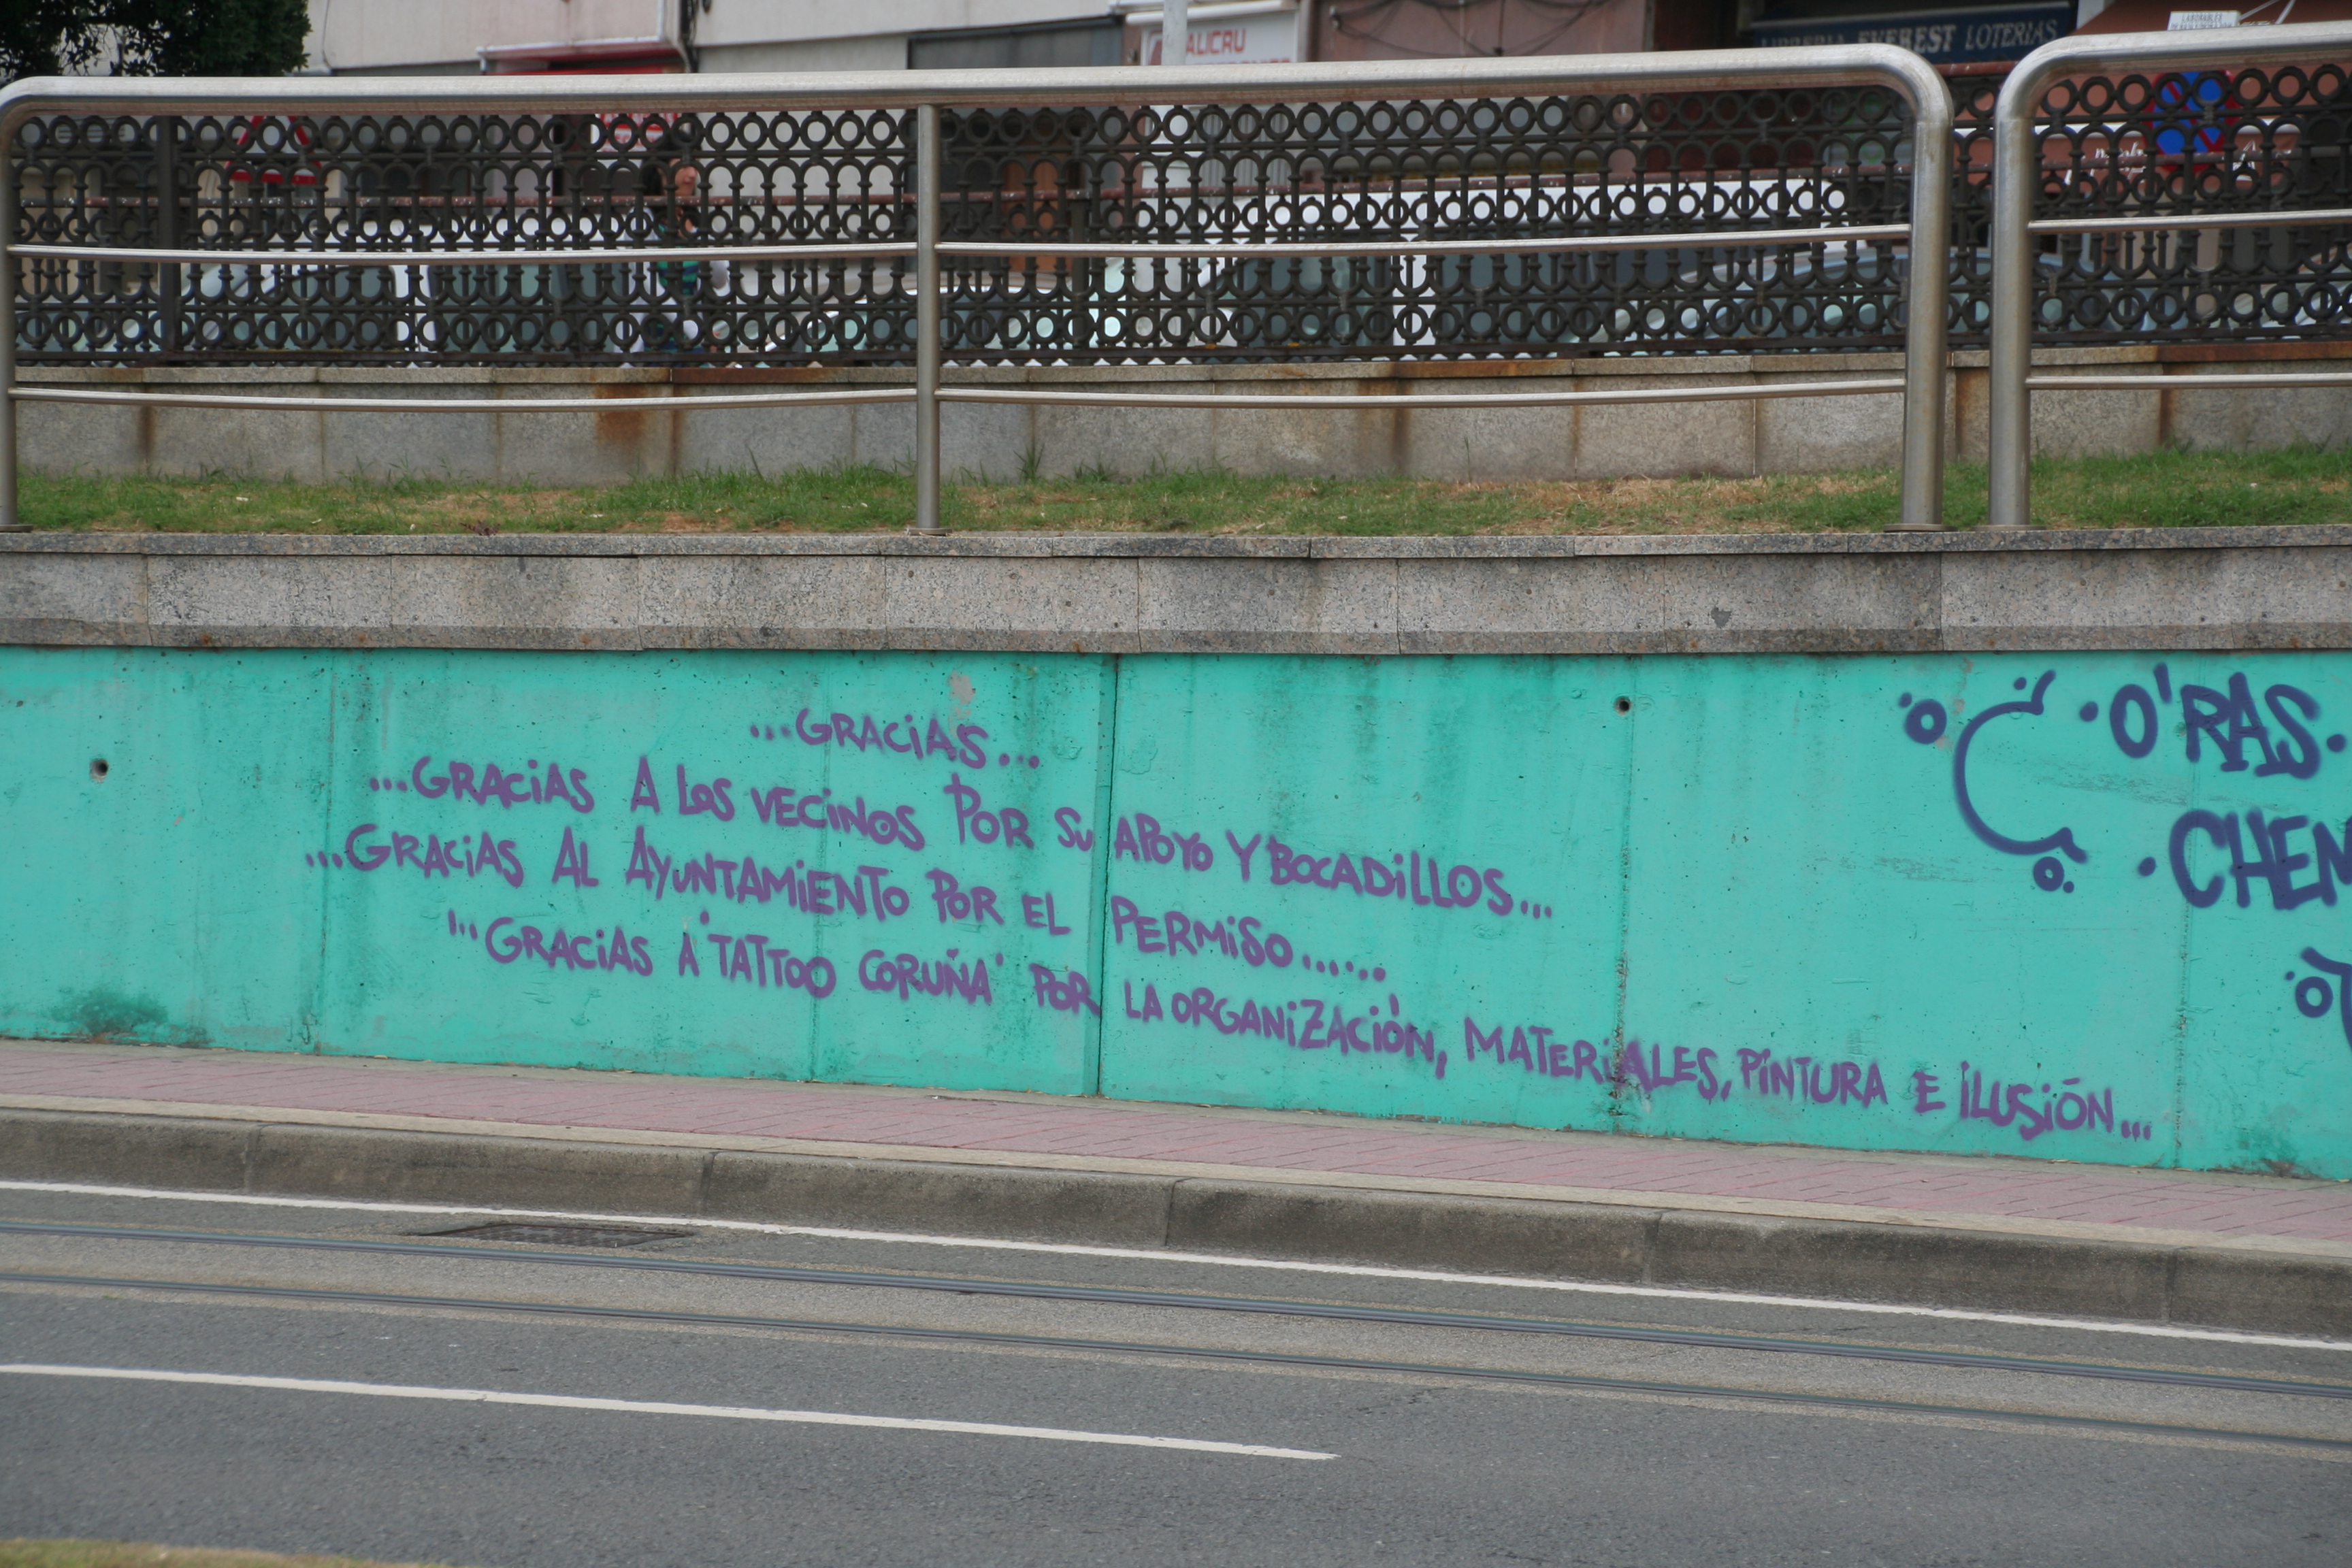 ALICRU
LIBRERIA EVEREST LOTERIAS
LABORABLES
...GRACiAS...
...GRACiAS A LOS VECiNOS POR SU APOYO Y BOCADiLLOS...
...GRACiAS AL AYUNTAMiENTO POR EL PERMiSO......
...GRACiAS A "TATTOO CORUÑA" POR LA ORGANiZACiÓN, MATERiALES, PiNTURA E iLUSiÓN...
·O'RAS·
·CHEN